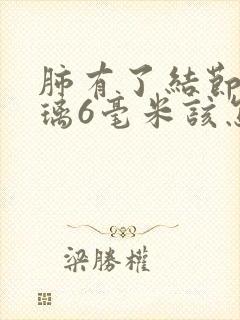 肺有了結節
璃6毫米該怎
梁勝權